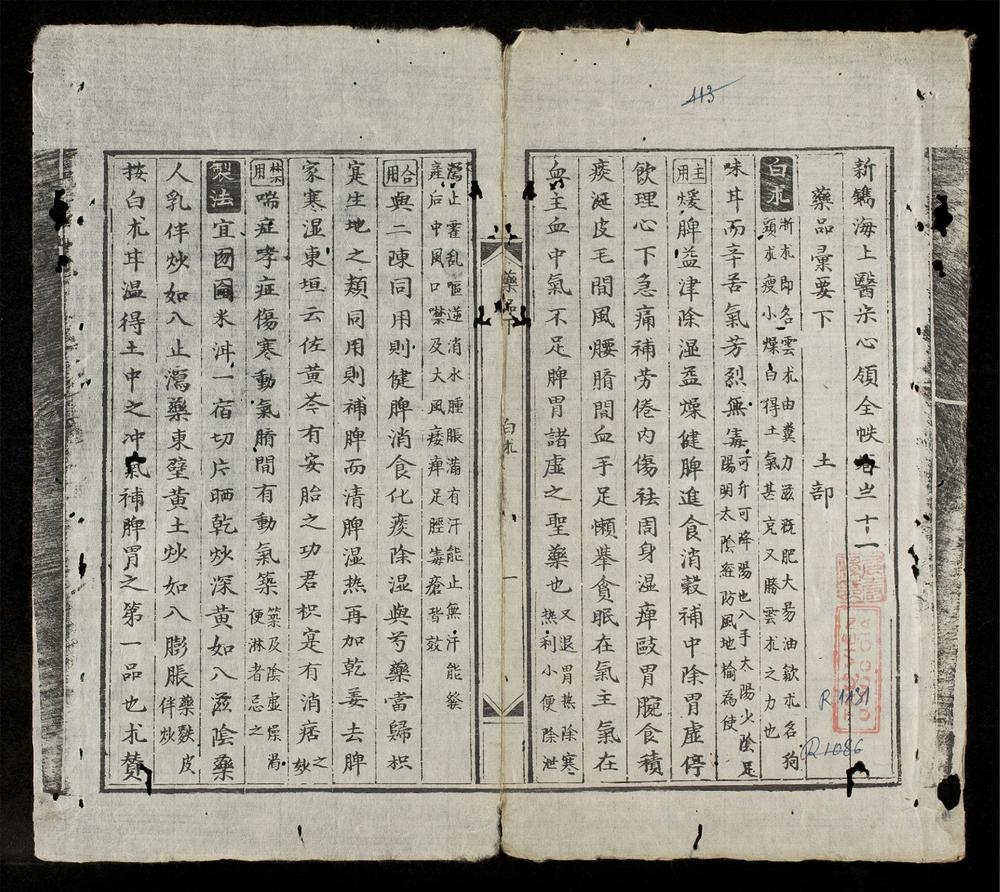 113
新鐫海上醫宗心領全帙卷之二十一
藥品彙要下 土部
白朮 浙朮即名雲朮由糞力滋溉肥大易油歙朮名狗
頭朮瘦小燥白得土氣甚充又勝雲朮之力也
味甘而辛苦氣芳烈無毒 可升可降陽也入手太陽少陰足
陽明太陰經防風地榆為使
主用 煖脾益津除湿益燥健脾進食消穀補中除胃虛停
飲理心下急痛補劳倦內傷祛周身湿痺敺胃腕食積
痰涎皮毛間風腰臍間血手足懶舉貪眠在氣主氣在
血主血中氣不足脾胃諸虛之聖藥也 又退胃热除寒
热利小便除泄
瀉止霍乱嘔逆消水腫脹滿有汗能止無汗能發
産后中風口噤及大風痿痺足脛毒瘡皆效
藥品下 白朮 一
合用 與二陳同用則健脾消食化痰除湿與芍藥當歸枳
寔生地之類同用則補脾而清脾湿热再加乾姜去脾
家寒湿東垣云佐黄芩有安胎之功君枳寔有消痞之
妙
禁用 喘症哮症傷寒動氣臍間有動氣築 築及陰虛燥渴
便淋者忌之
製法 宜囫圇米泔一宿切片晒乾炒深黄如入滋陰藥
人乳伴炒如入止瀉藥東壁黄土炒如入膨脹 藥麩皮
伴炒
按白朮甘温得土中之冲氣補脾胃之第一品也朮賛
R.1131
R.1086